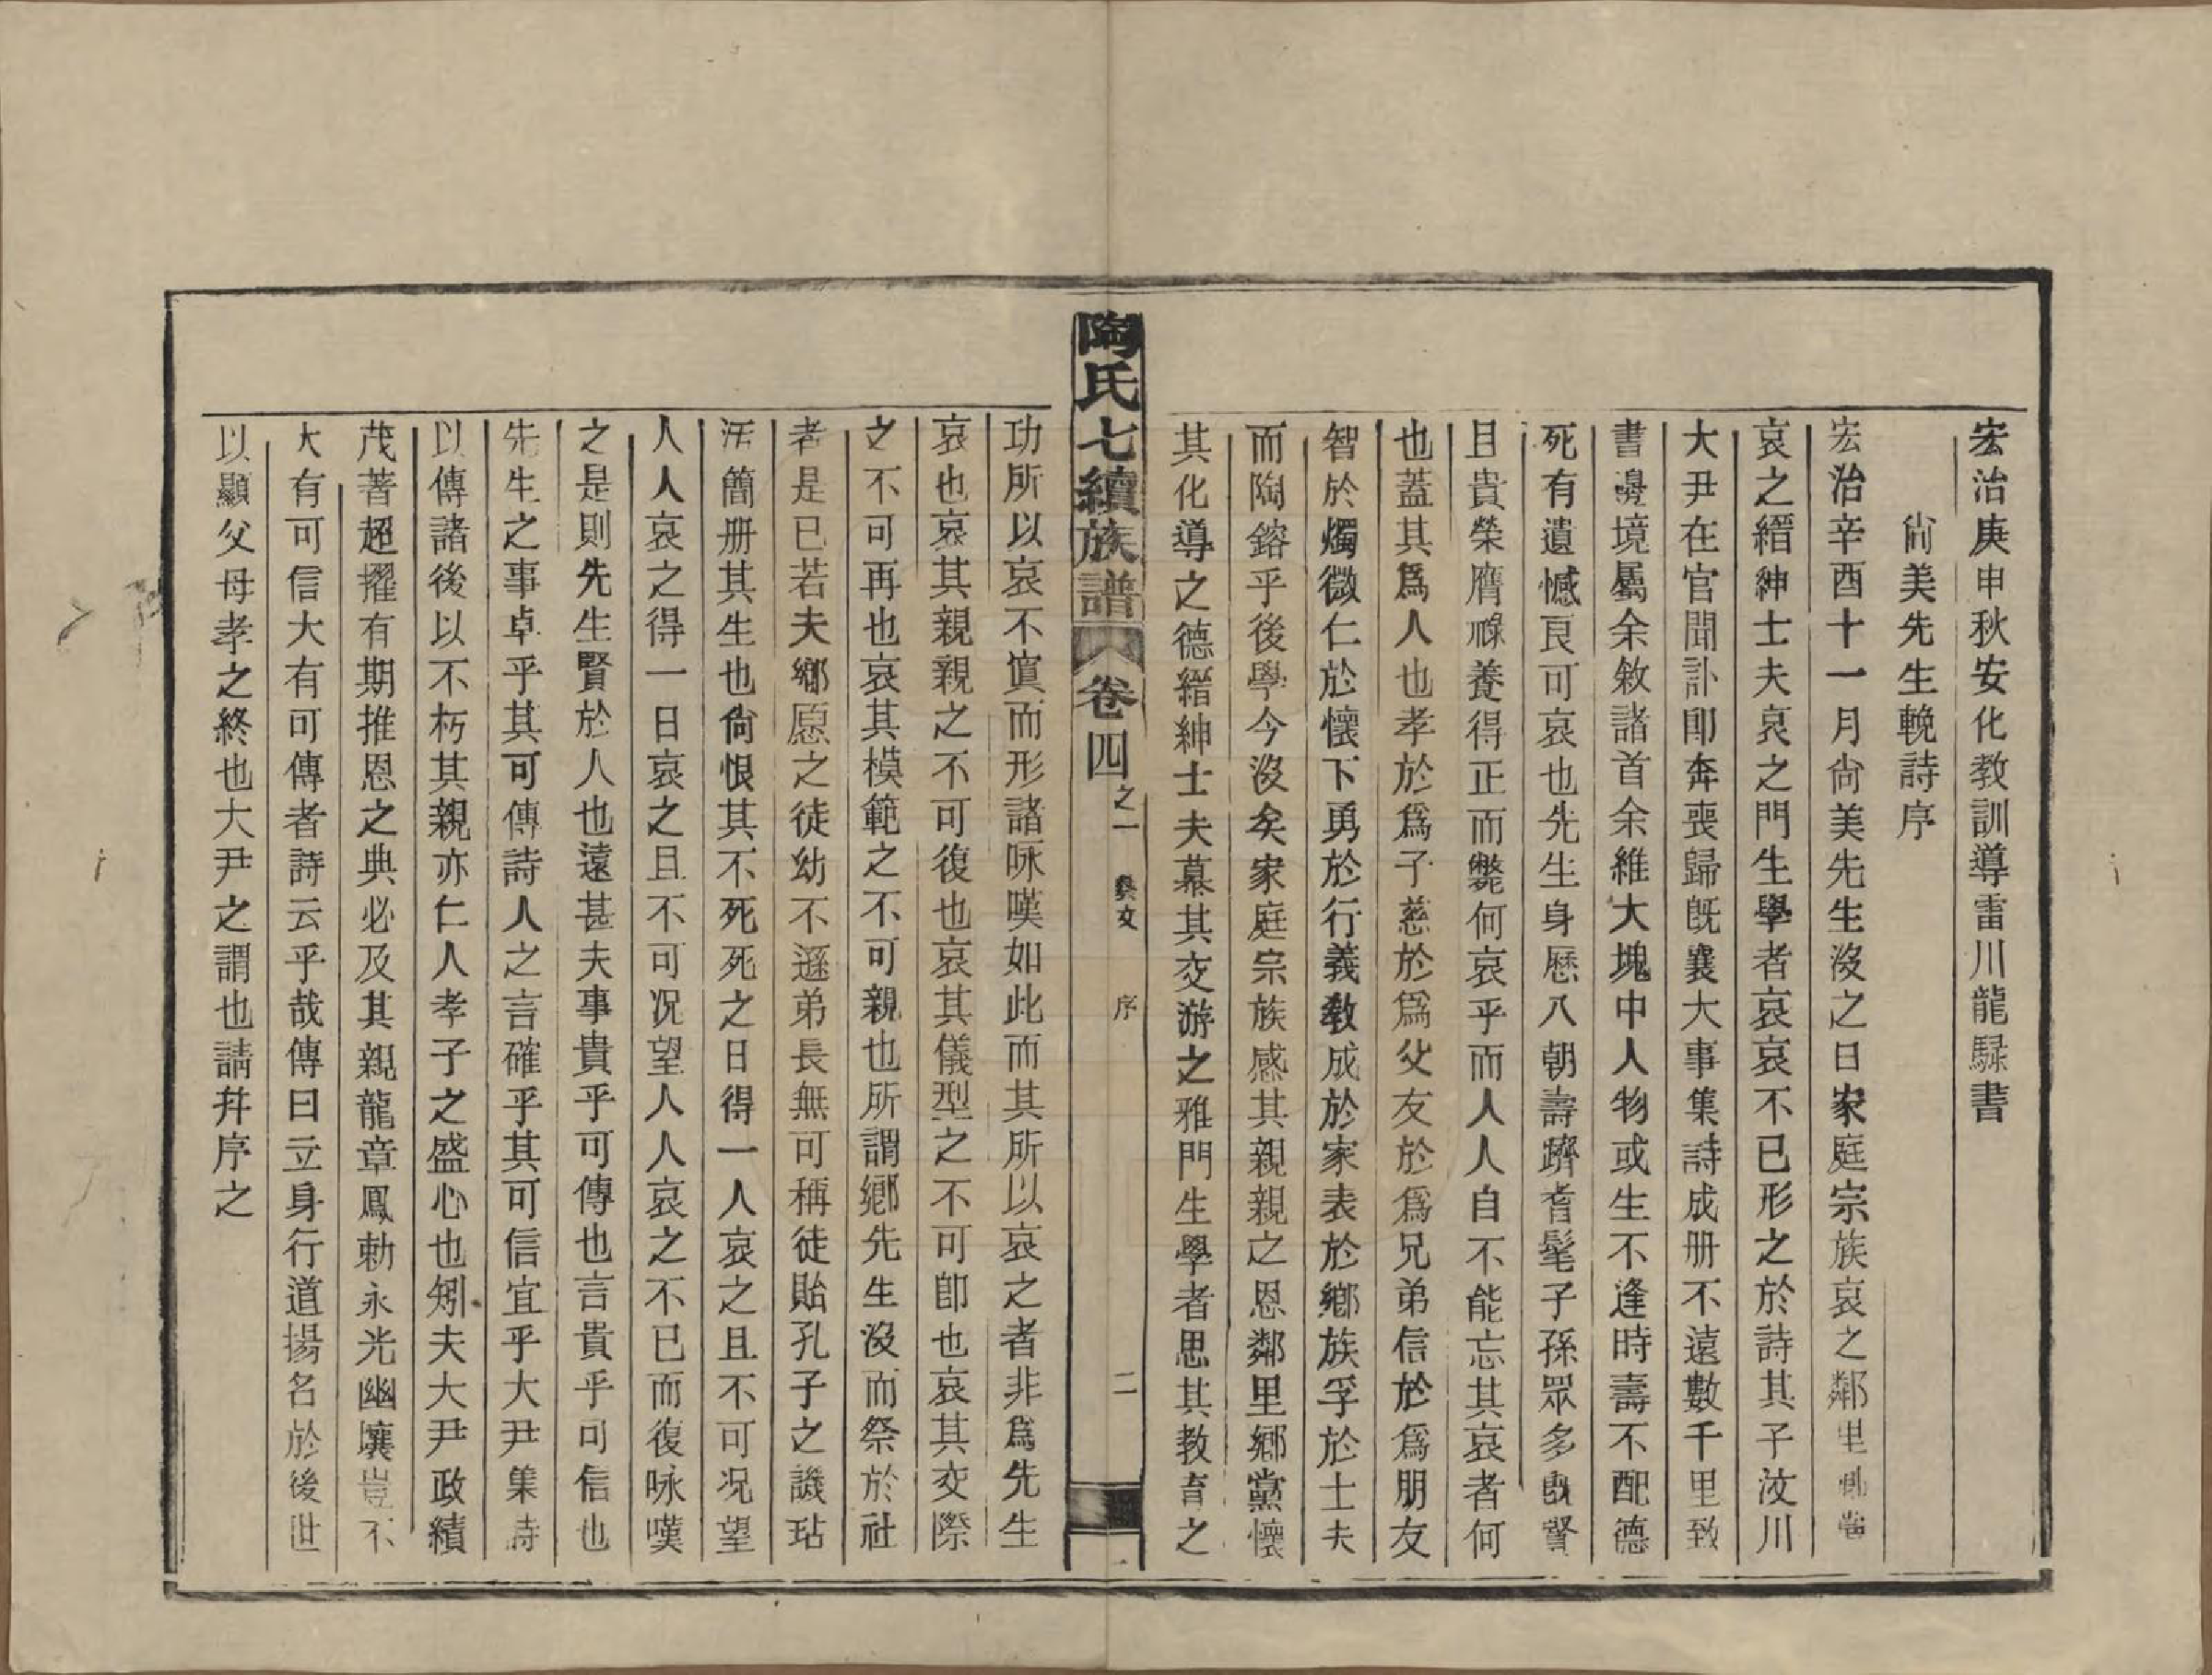 宏治庚申秋安化教訓導雷川龍騄書
尙美先生輓詩序
宏治辛酉十一月尙美先生沒之日家庭宗族哀之鄰里鄕黨
哀之縉紳士夫哀之門生學者哀哀不已形之於詩其子汶川
大尹在官聞訃卽奔喪歸旣襄大事集詩成册不遠數千里致
書邊境屬余敘諸首余維大塊中人物或生不逢時壽不配德
死有遺憾良可哀也先生身歷八朝壽躋耆髦子孫眾多旣賢
且貴榮膺祿養得正而斃何哀乎而人人自不能忘其哀者何
也蓋其爲人也孝於爲子慈於爲父友於爲兄弟信於爲朋友
智於燭微仁於懷下勇於行義教成於家表於鄕族孚於士夫
而陶鎔乎後學今沒矣家庭宗族感其親親之恩鄰里鄕黨懷
其化導之德縉紳士夫慕其交游之雅門生學者思其教育之
陶氏七續族譜
卷四之一 藝文 序 二
功所以哀不寘而形諸咏嘆如此而其所以哀之者非爲先生
哀也哀其親親之不可復也哀其儀型之不可卽也哀其交際
之不可再也哀其模範之不可親也所謂鄕先生沒而祭於社
者是已若夫鄕愿之徒幼不遜弟長無可稱徒貽孔子之譏玷
汚簡册其生也尙恨其不死死之日得一人哀之且不可况望
人人哀之得一日哀之且不可况望人人哀之不已而復咏嘆
之是則先生賢於人也遠甚夫事貴乎可傳也言貴乎可信也
先生之事卓乎其可傳詩人之言確乎其可信宜乎大尹集詩
以傳諸後以不朽其親亦仁人孝子之盛心也矧夫大尹政績
茂著超擢有期推恩之典必及其親龍章鳳勅永光幽壤豈不
大有可信大有可傳者詩云乎哉傳曰立身行道揚名於後世
以顯父母孝之終也大尹之謂也請幷序之